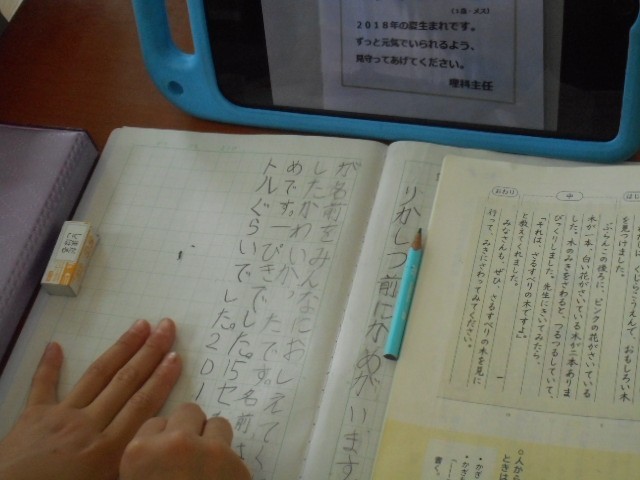 (1歳・メス)
2018年の夏生まれです。
ずっと元気でいられるよう、
見守ってあげてください。
理科主任
りかしつ前にかめがいます
が名前をみんなにおしえてく
したかわいかったです。名前
めです。一ぴきでした。15セ
トルぐらいでした。201
はじ
を見つけました。
中
ぶらんこの後ろに、ピンクの花がさいている
木が一本、白い花がさいている木が二本ありま
した。木のみきをさわると、つるつるしていて、
びっくりしました。先生にきいてみたら、
「それは、さるすべりの木ですよ。」
と教えてくれました。
おわり
みなさんも、ぜひ、さるすべりの木を見に
行って、みきにさわってみてください。
○人から
ときは
・かぎ
・かぎ
書く。